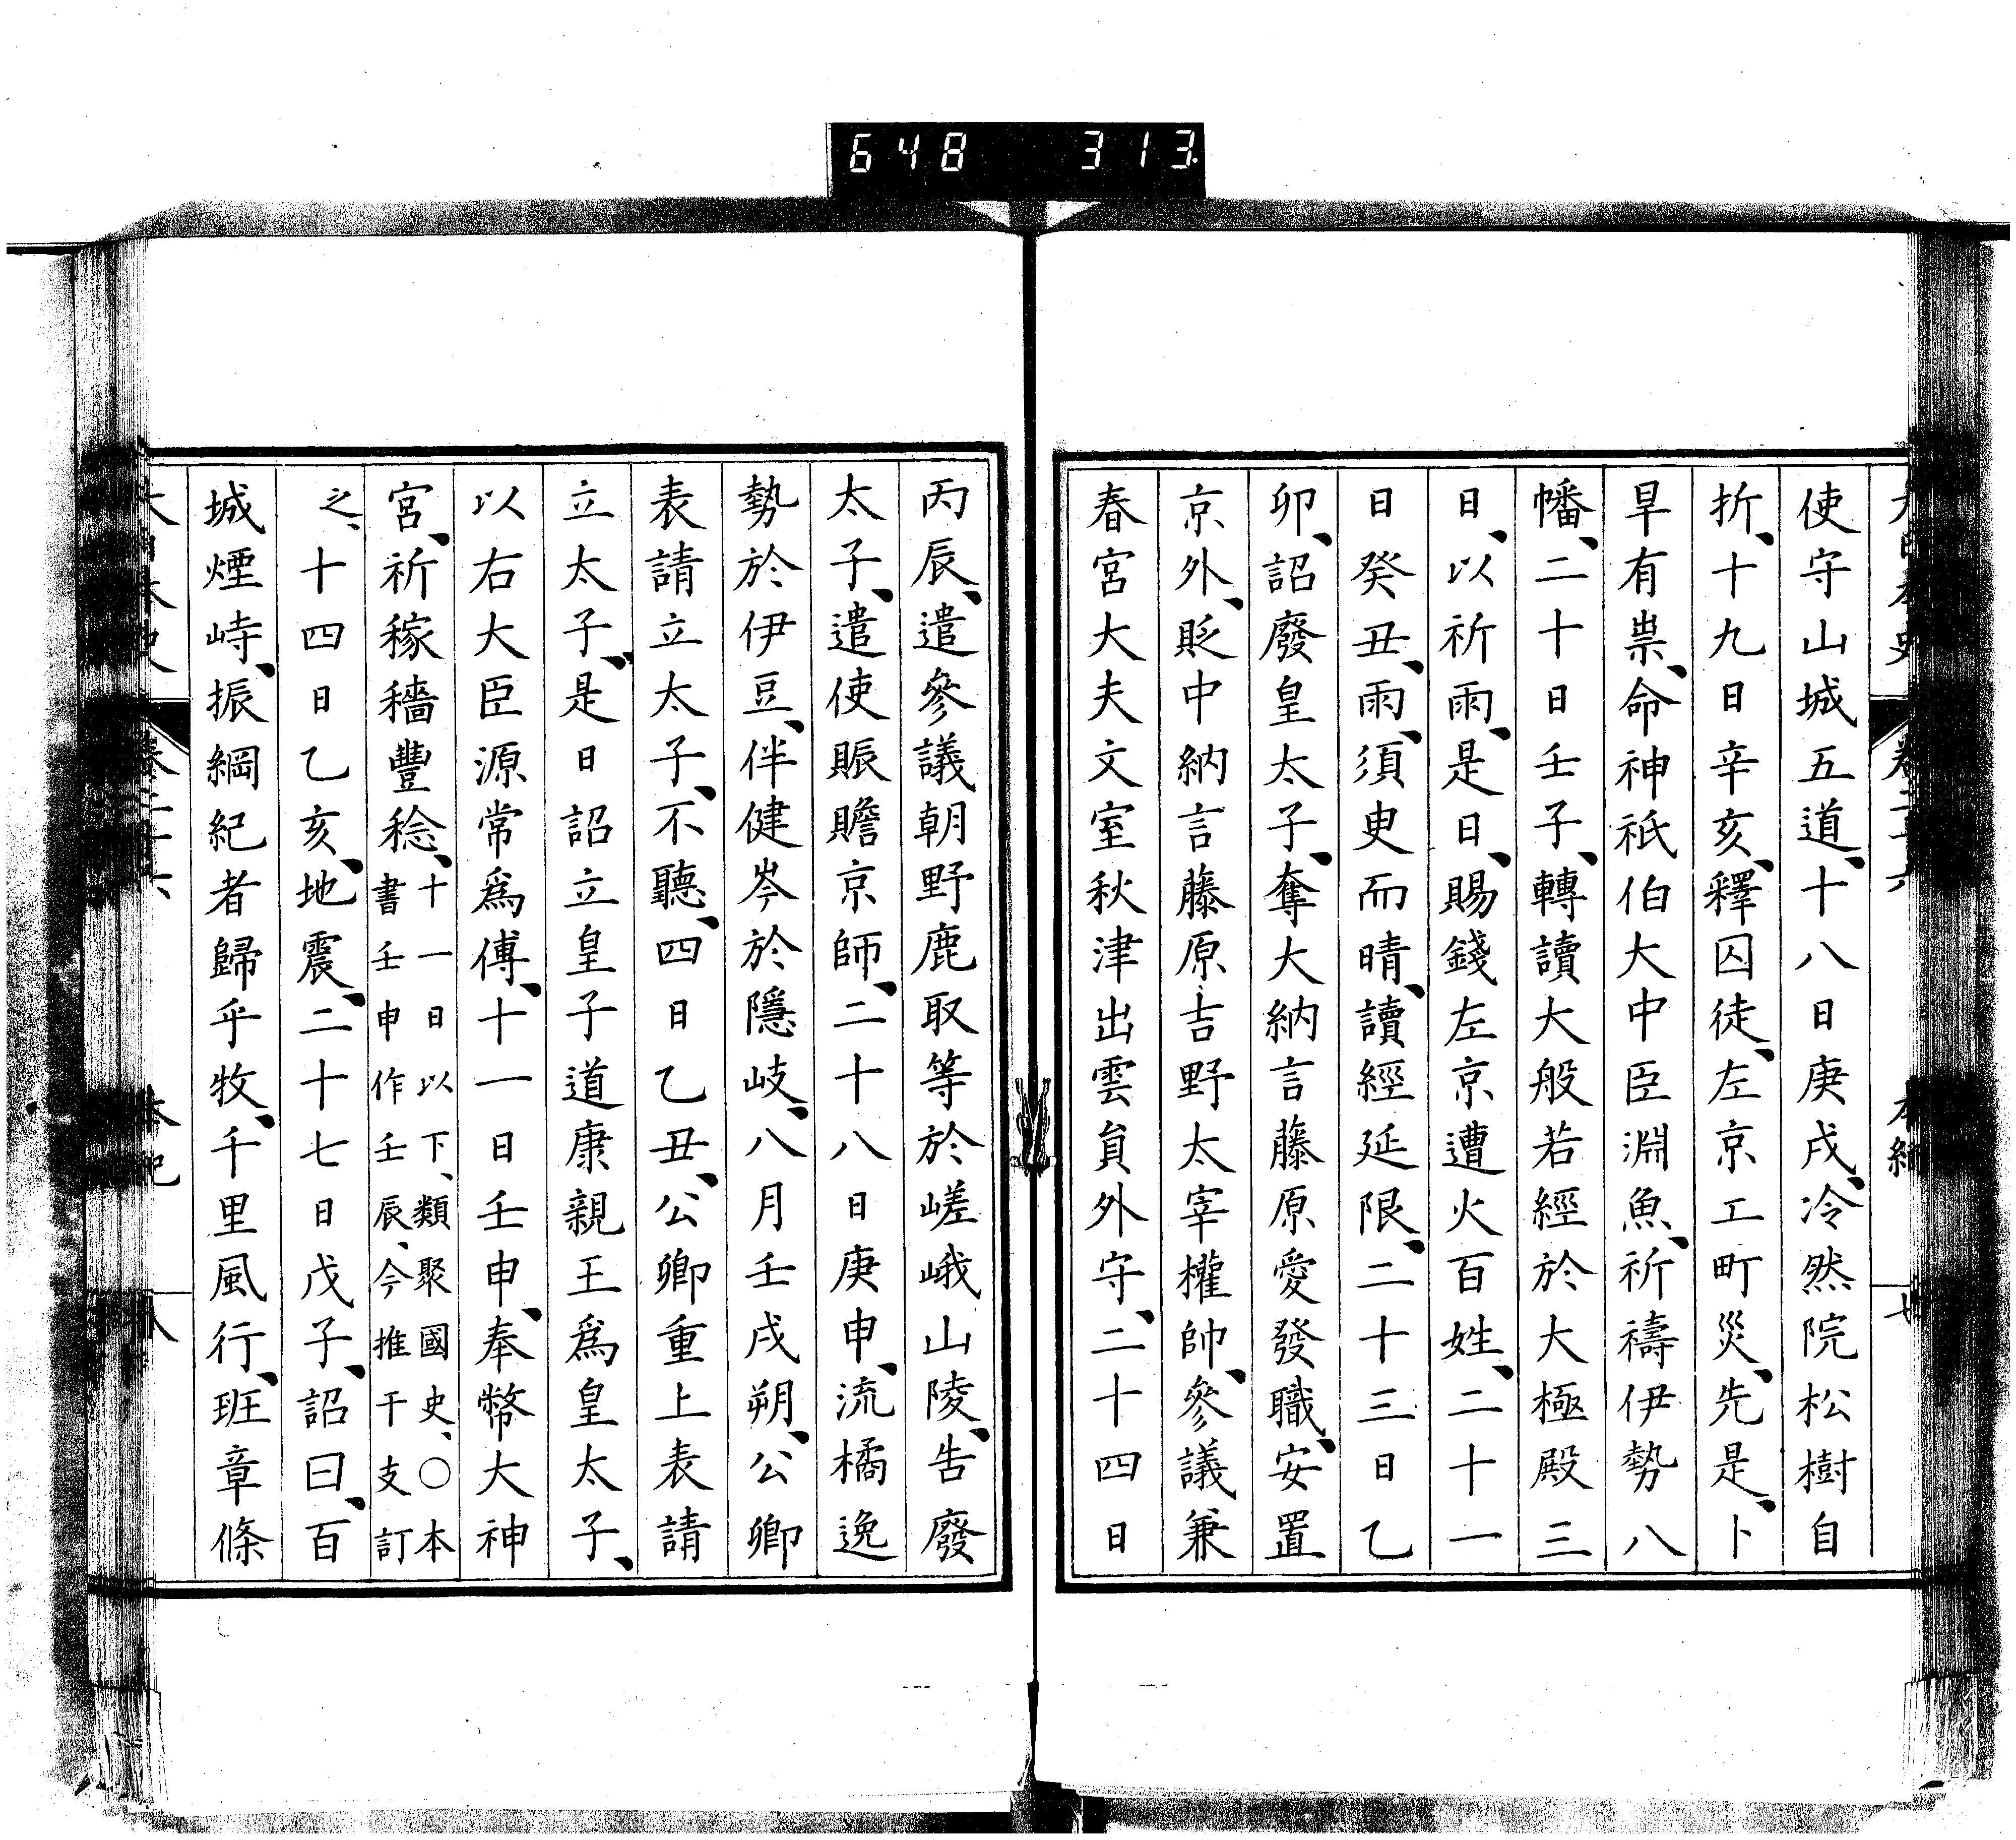 648 313.
使守山城五道、十八日庚戌、冷然院松樹自
折、十九日辛亥、釋囚徒、左京工町災、先是、卜
旱有祟、命神祇伯大中臣淵魚、祈禱伊勢八
幡、二十日壬子、轉讀大般若經於大極殿三
日、以祈雨、是日、賜錢左京遭火百姓、二十一
日癸丑、雨、須臾而晴、讀經延限、二十三日乙
卯、詔廢皇太子、奪大納言藤原愛發職、安置
京外、貶中納言藤原吉野太宰權帥、參議兼
春宮大夫文室秋津出雲員外守、二十四日
丙辰、遣參議朝野鹿取等於嵯峨山陵、告廢
太子、遣使賑贍京師、二十八日庚申、流橘逸
勢於伊豆、伴健岑於隱岐、八月壬戌朔、公卿
表請立太子、不聽、四日乙丑、公卿重上表請
立太子、是日詔立皇子道康親王爲皇太子、
以右大臣源常爲傅、十一日壬申、奉幣大神
宮、祈稼穡豐稔、十一日以下、類聚國史、〇本
書壬申作壬辰、今推干支訂
之、十四日乙亥、地震、二十七日戊子、詔曰、百
城煙峙、振綱紀者歸乎牧、千里風行、班章條